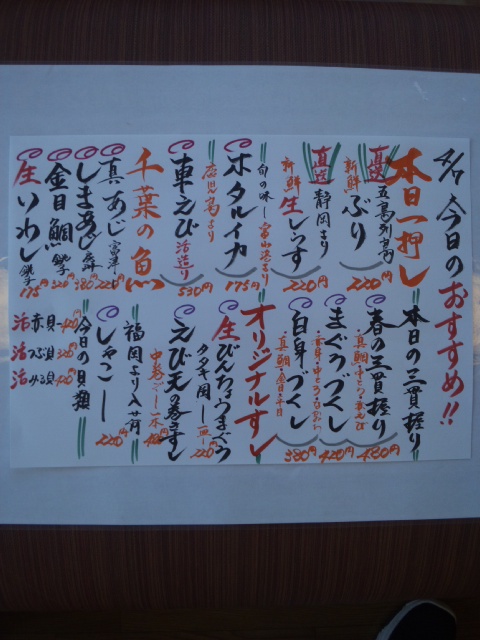 4/7 今日のおすすめ!!
本日一押し
直送 五島列島
新鮮 ぶり
220円
直送 静岡より
新鮮 生しらす
220円
旬の味 富山湾より
ホタルイカ
175円
鹿児島より
車えび 活造り
530円
千葉の魚
真あじ
220円
しまあじ
380円
金目鯛 銚子
320円
生いわし 銚子
175円
本日の三貫握り
春の三貫握り
480円
まぐろづくし
420円
白身づくし
・真鯛
380円
オリジナルすし
生びんちょうまぐろ
220円
えび天の巻きずし
中巻 一本
福岡より入荷
しゃこ
220円
今日の貝類
活赤貝
活つぶ貝
活みる貝